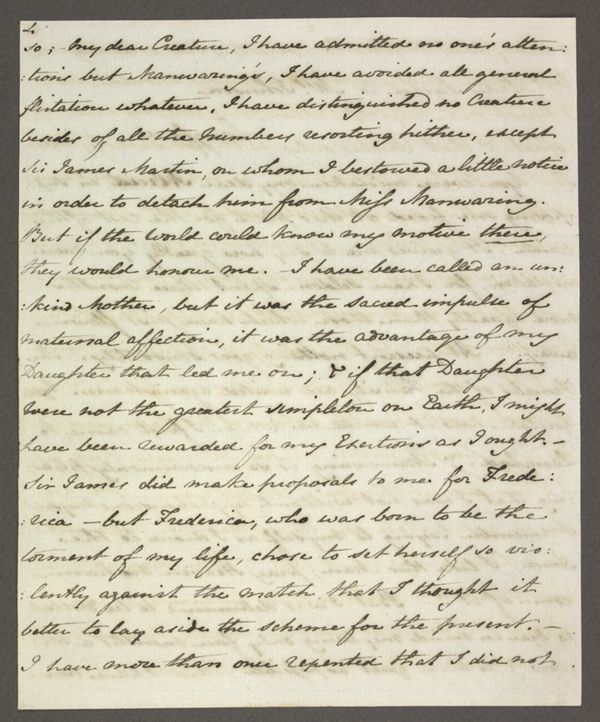 4
so; my dear Creature, I have admitted no one's atten:
:tions but Manwaring's, I have avoided all general
flirtation whatever, I have distinguished no Creature
besides of all the Numbers resorting hither, except
Sir James Martin, on whom I bestowed a little notice
in order to detach him from Miss Manwaring.
But if the World could know my motive there,
they would honour me. — I have been called an un:
:kind Mother, but it was the sacred impulse of
maternal affection, it was the advantage of my
Daughter that led me on; & if that Daughter
were not the greatest simpleton on Earth, I might
have been rewarded for my Exertions as I ought. —
Sir James did make proposals to me for Frede:
:rica — but Frederica, who was born to be the
torment of my life, chose to set herself so vio:
:lently against the match, that I thought it
better to lay aside the scheme for the present. —
I have more than once repented that I did not